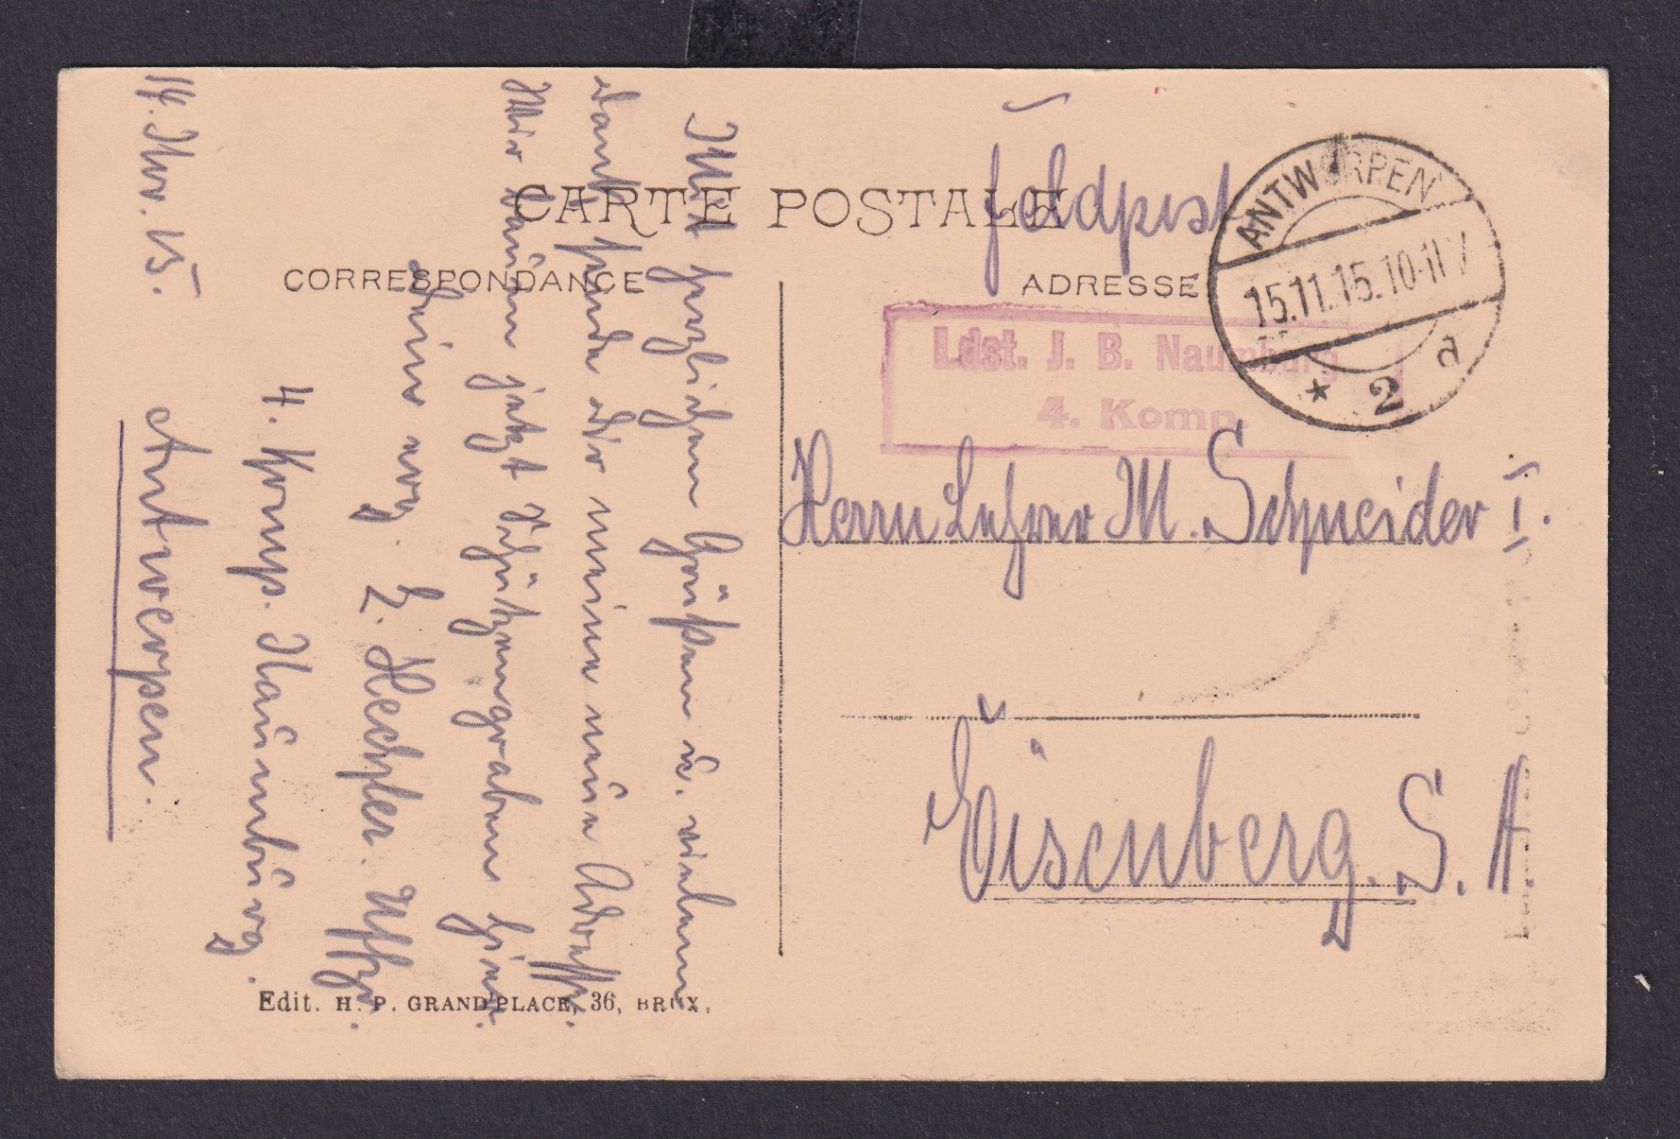 CARTE POSTALE
CORRESPONDANCE
ADRESSE
Feldpost
ANTWERPEN
15.11.15.10-11V
* 2 d
Ldst. J. B. Naumburg
4. Komp.
Herrn Lehrer M. Schneider I.
Eisenberg. S. A.
Mit herzlichen Grüßen u. vielem
Dank sende Dir meine neue Adresse.
Wir bauen jetzt Schützengraben hier.
Dein
E. Hechler. Uffz.
4. Komp. Naumburg.
Antwerpen.
14. Nov. 15.
Edit. H. P. GRAND'PLACE, 36, BRUX.